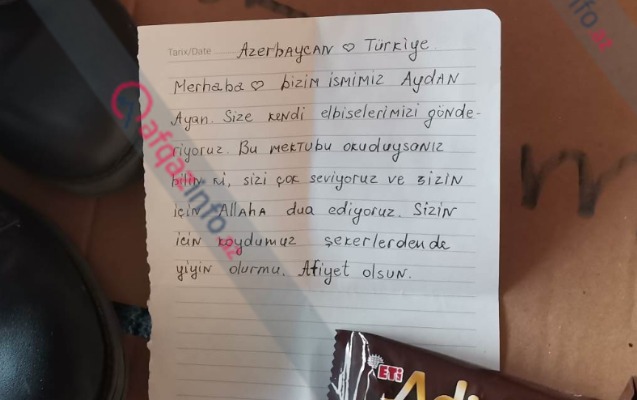 Tarix/Date
AzerbaycAN ♡ Türkiye
Merhaba ♡ bizim ismimiz AydAN
Ayan. Size kendi elbiselerimizi gönde-
riyoruz. Bu mektubu okuduysanız
bilin ki, sizi çok seviyoruz ve sizin
için Allaha dua ediyoruz. Sizin
icin koydumuz şekerlerdende
yiyin olurmu. Afiyet olsun.
ETi
Adi
afqazinfo.az
info.az